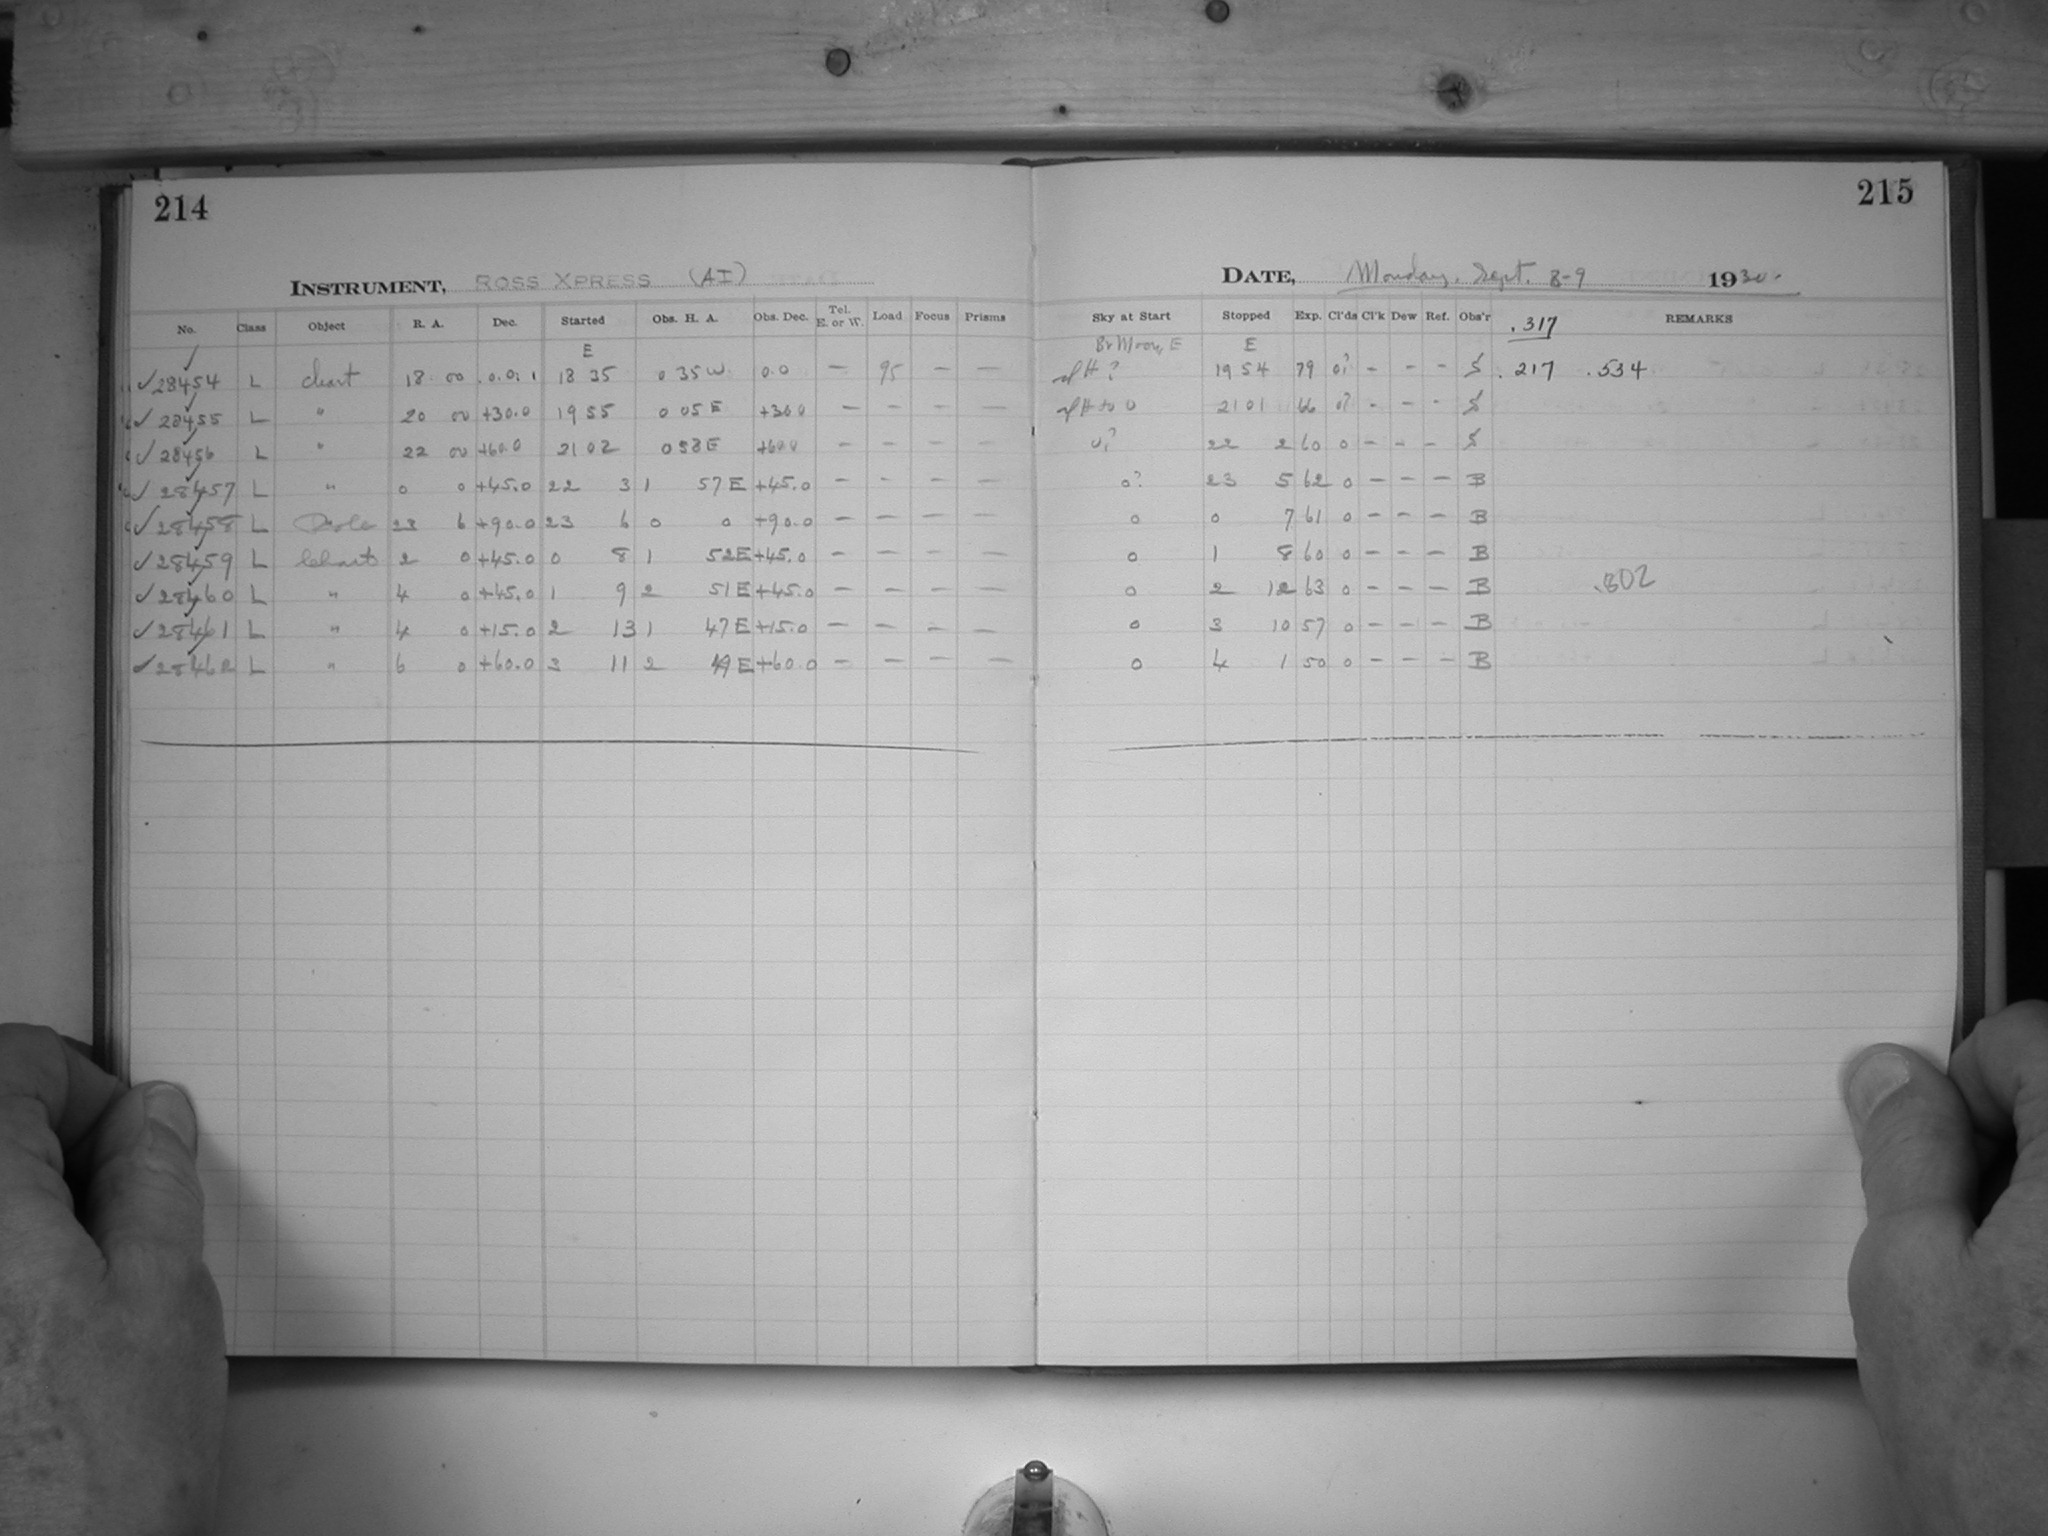 214
INSTRUMENT, ROSS XPRESS (AI)
No. Class Object R. A. Dec. Started Obs. H. A. Obs. Dec. Tel. E. or W. Load Focus Prisms
E
✓28454 L chart 18 00 0.0 18 35 0 35 W. 0.0 — 95 — —
✓28455 L " 20 00 +30.0 19 55 0 05 E +30.0 — — — —
✓28456 L " 22 00 +60.0 21 02 0 58 E +60.0 — — — —
✓28457 L " 0 0 +45.0 22 3 1 57 E +45.0 — — — —
✓28458 L Pole 23 6 +90.0 23 6 0 0 +90.0 — — — —
✓28459 L Chart 2 0 +45.0 0 8 1 52 E +45.0 — — — —
✓28460 L " 4 0 +45.0 1 9 2 51 E +45.0 — — — —
✓28461 L " 4 0 +15.0 2 13 1 47 E +15.0 — — — —
✓28462 L " 6 0 +60.0 3 11 2 49 E +60.0 — — — —
215
DATE, Monday. Sept. 8-9 1930.
Sky at Start Stopped Exp. Cl'ds Cl'k Dew Ref. Obs'r .317 REMARKS
Br Moon, E E
H? 19 54 79 0? - - - S .217 .534
H to 0 21 01 66 0? - - - S
0? 22 2 60 0 - - - S
0? 23 5 62 0 - - - B
0 0 7 61 0 - - - B
0 1 8 60 0 - - - B
0 2 12 63 0 - - - B .802
0 3 10 57 0 - - - B
0 4 1 50 0 - - - B